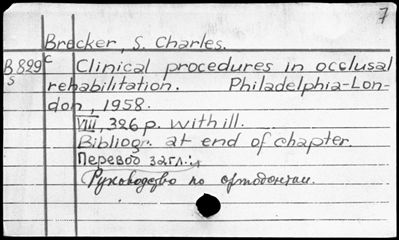 7
Brecker, S. Charles.
B899 c Clinical procedures in occlusal
s rehabilitation. Philadelphia-Lon-
don, 1958.
VIII, 326 p. with ill.
Bibliogr. at end of chapter.
Перевод загл.:
Руководство по ортодонтии.